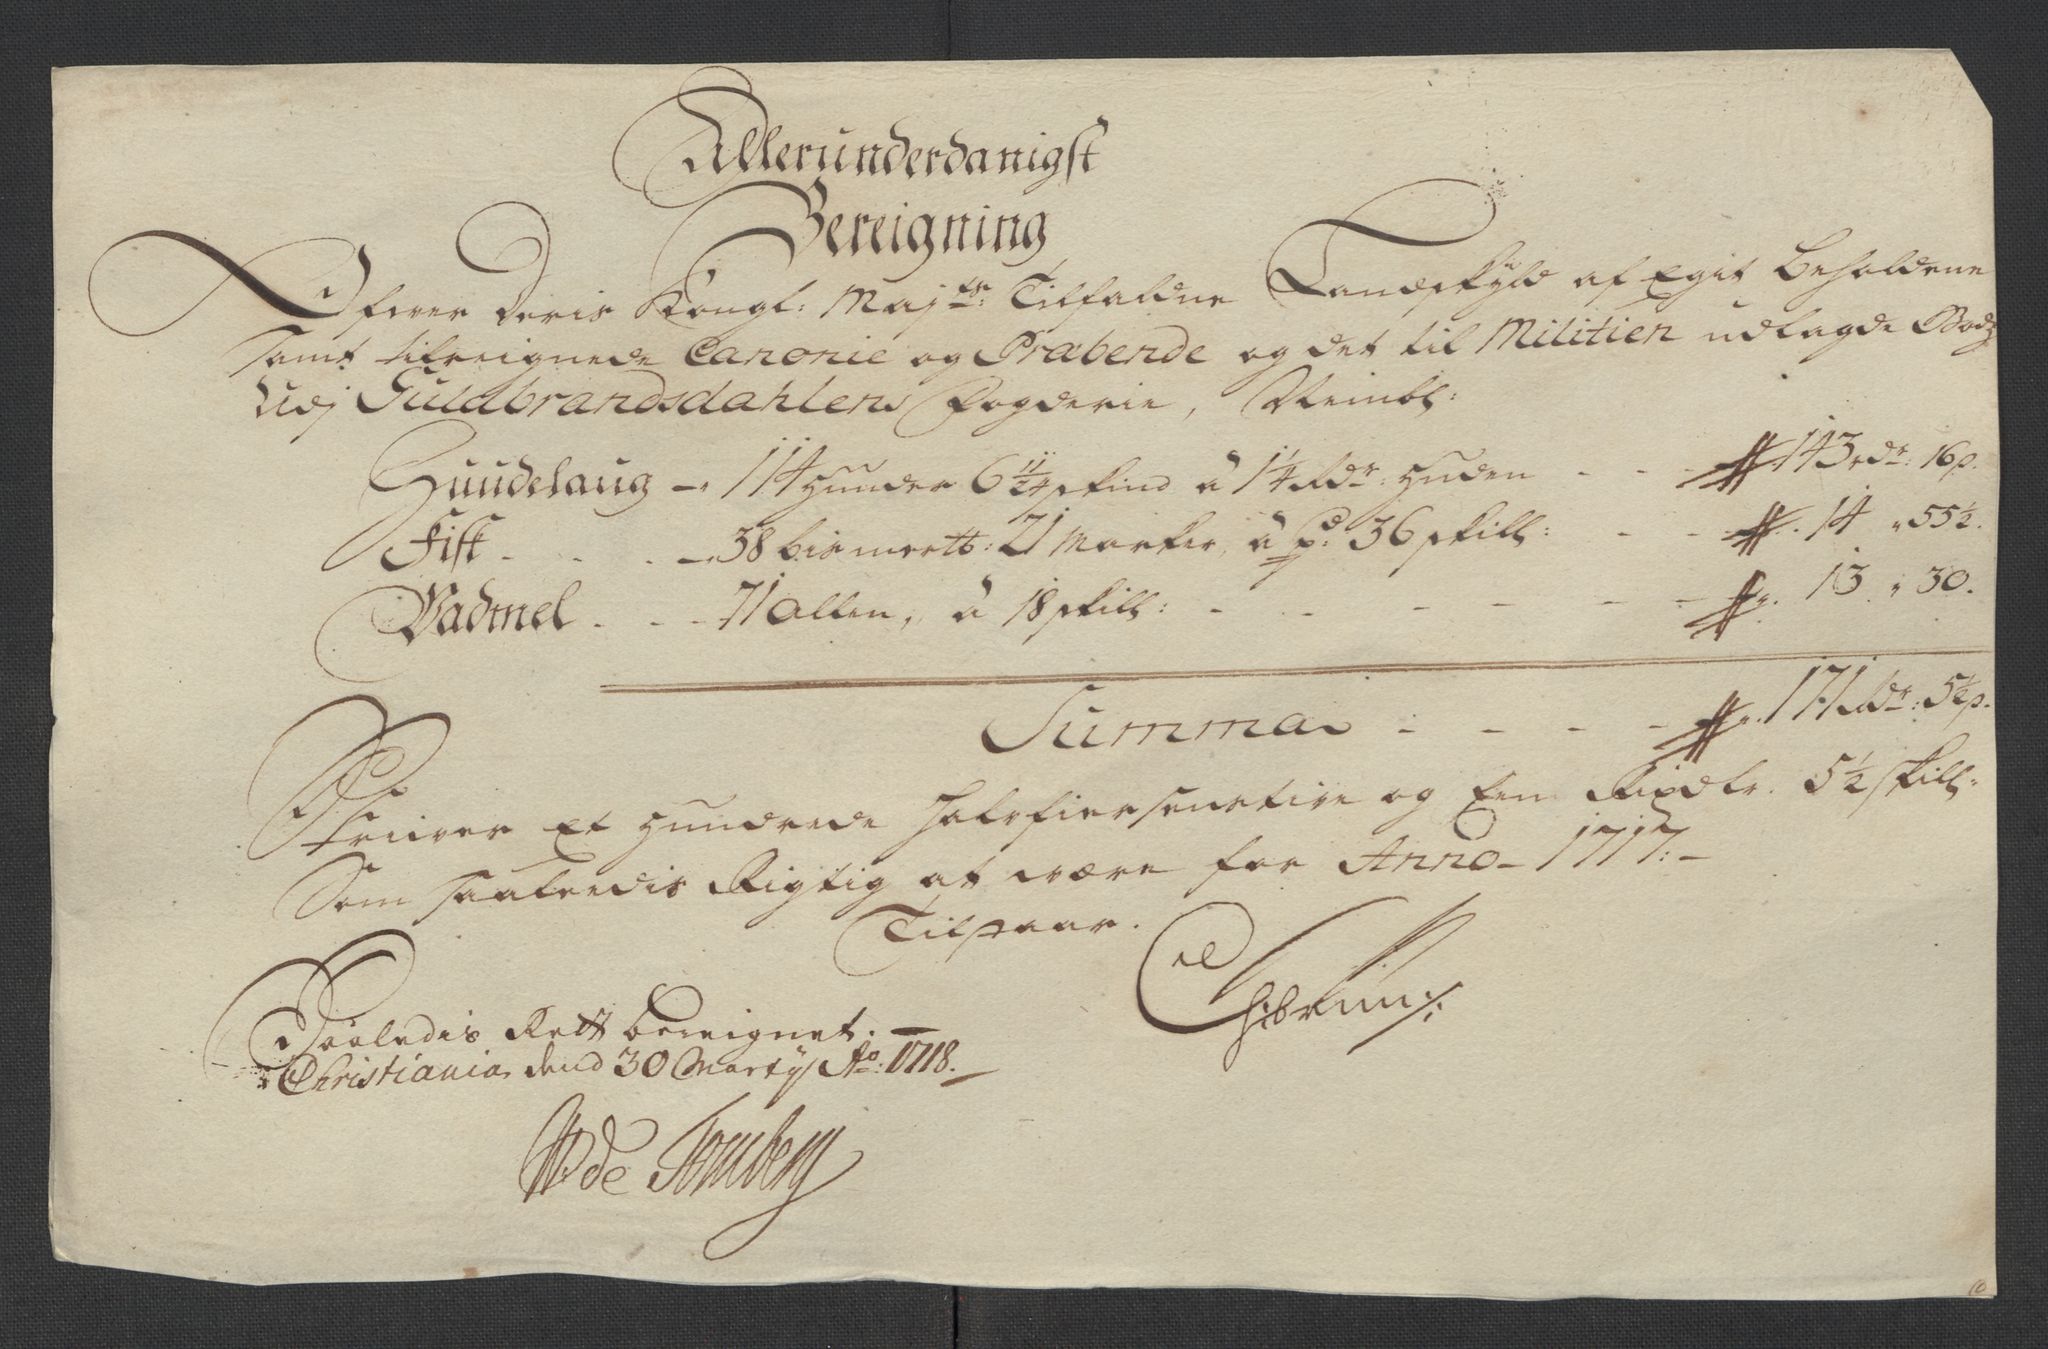 Allerunderdanigst
Bereigning
Ofver Deris Kongl: Maj:ts: Tilfaldne Landskyld af Egit beholdene
samt tilreignede Canonie og Præbende og det til Militien udlagde Godz
Udj Guldbrandsdahlens Fogderie, Neml:
Huudelaug - 114 Huuder 6 11/24 skind à 1¼ Rdr: Huden - - - 143 rdr: 16 s.
Fisk - - - 38 bismertt: 21 Marker, à pd: 36 skill: - - - 14 " 55½.
Vadmel - - - 71 Allen, à 18 skill: - - - - - - 13 " 30.
Summa - - - - 171 Rdr: 5½ s.
Skriver Et Hundrede Halffiersenstive og Een Rixdlr. 5½ skill:
Som saaledis Rigtig at være for Anno 1717: -
Tilstaar.
Saaledis Rett bereignet. -
Christiania dend 30 Marty Ao: 1718. -
de Tonsberg